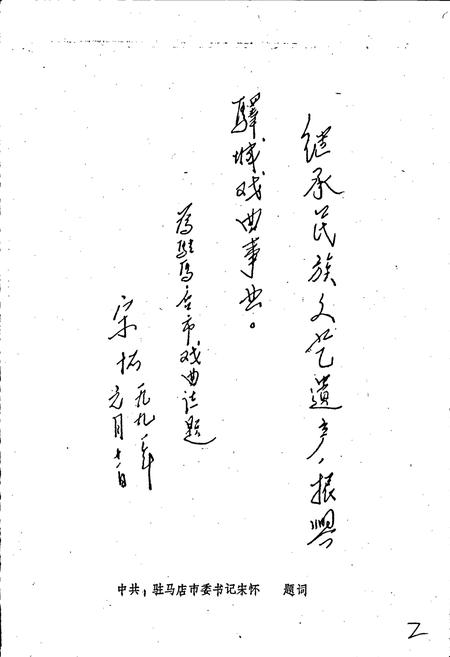 继承民族文艺遗产，振興
驿城戏曲事业。
为驻马店市戏曲志题
宋怀 一九九一年
元月十八日
中共，驻马店市委书记宋怀 题词
2